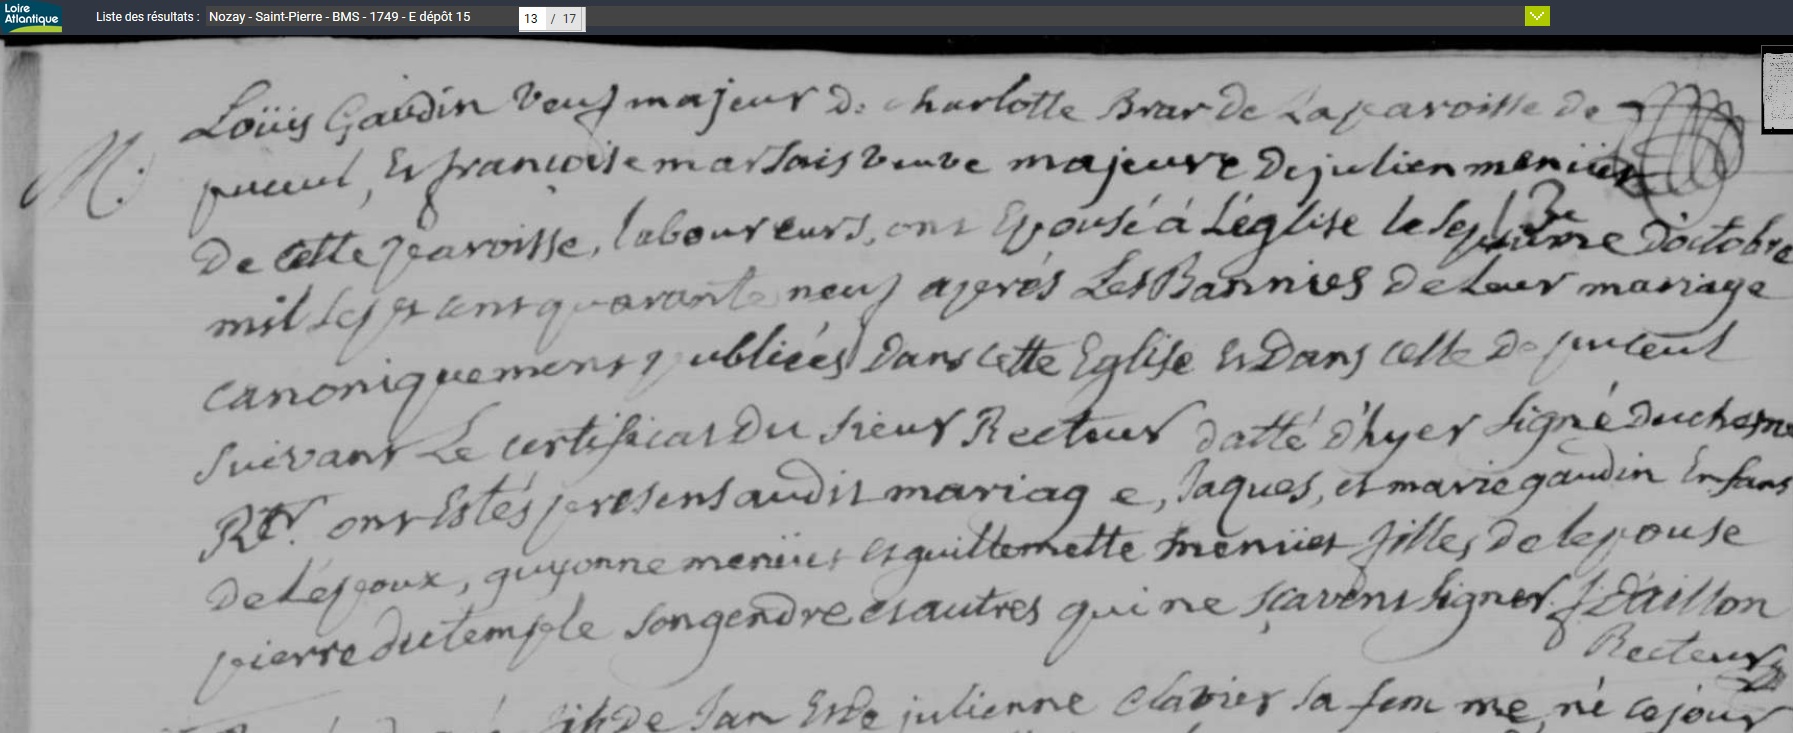 Loire
Atlantique
Liste des résultats : Nozay - Saint-Pierre - BMS - 1749 - E dépôt 15
13 / 17
M.
Loüis Gaudin veuf majeur de charlotte Brar de La paroisse de
puceul, Et françoise marsais veuve majeure de julien meniier
De cette paroisse, laboureurs, ont Epousé á L'église le d'octobre
mil sept cent quarante neuf aprés Les Bannies de Leur mariage
canoniquement publiées dans cette Eglise Et Dans celle de puceul
suivant Le certificat Du sieur Recteur datté d'hyer signé Duchesne
Rtr. ont Estés presens audit mariage, Jaques, et marie gaudin Enfans
De L'époux, guyonne meniier et guillemette meniier filles de lepouse
pierre dutemple son gendre et autres qui ne sçavent signer. J: Daillon
Recteur
fils de Jan Et de julienne Clavier sa femme, né ce jour